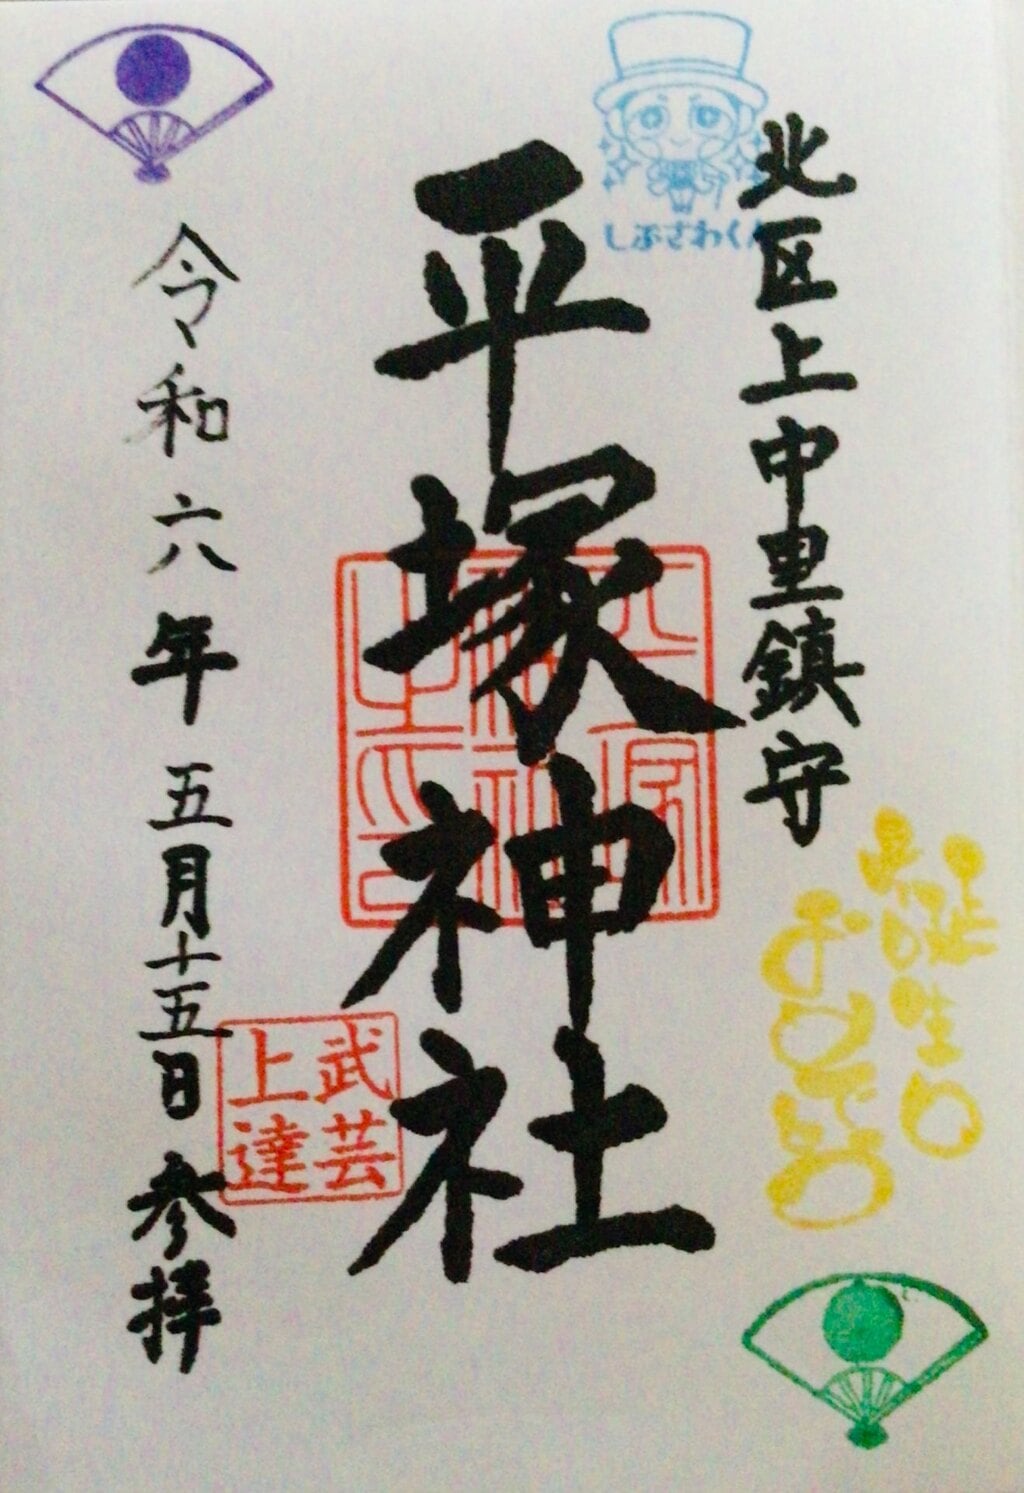 北区上中里鎮守
しぶさわくん
お誕生日
おめでとう
平塚神社
武芸
上達
令和六年五月十五日参拝